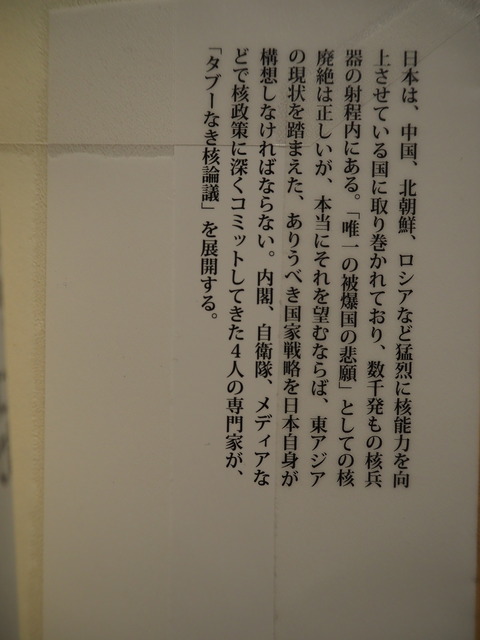 日本は、中国、北朝鮮、ロシアなど猛烈に核能力を向
上させている国に取り巻かれており、数千発もの核兵
器の射程内にある。「唯一の被爆国の悲願」としての核
廃絶は正しいが、本当にそれを望むならば、東アジア
の現状を踏まえた、ありうべき国家戦略を日本自身が
構想しなければならない。内閣、自衛隊、メディアな
どで核政策に深くコミットしてきた4人の専門家が、
「タブーなき核論議」を展開する。